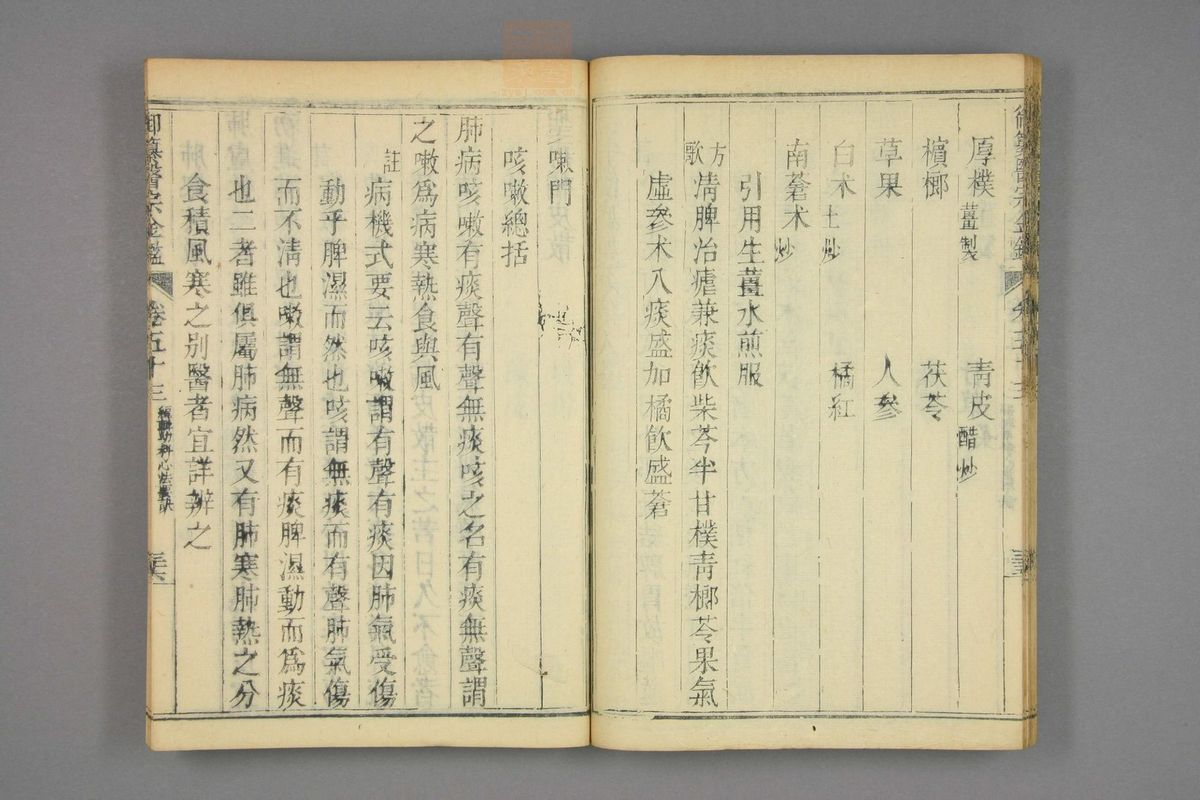 厚樸 薑製 靑皮 醋炒
檳榔 茯苓
草果 人參
白术 土炒 橘紅
南蒼术 炒
引用生薑水煎服
方歌 淸脾治瘧兼痰飮柴芩半甘樸靑榔苓果氣
虛參术入痰盛加橘飮盛蒼
嗽門
咳嗽總括
肺病咳嗽有痰聲有聲無痰咳之名有痰無聲謂
之嗽爲病寒熱食與風
註 病機式要云咳嗽謂有聲有痰因肺氣受傷
動乎脾濕而然也咳謂無痰而有聲肺氣傷
而不淸也嗽謂無聲而有痰脾濕動而爲痰
也二者雖俱屬肺病然又有肺寒肺熱之分
食積風寒之别醫者宜詳辨之
御纂醫宗金鑑 卷五十三 編輯幼科心法要訣